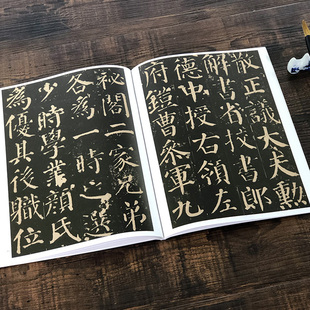 散正議大夫勳
解書省校書郎
德中授右領左
府鎧曹參軍九
祕閣二家兄弟
各為一時之選
少時學業顏氏
為優其後職位